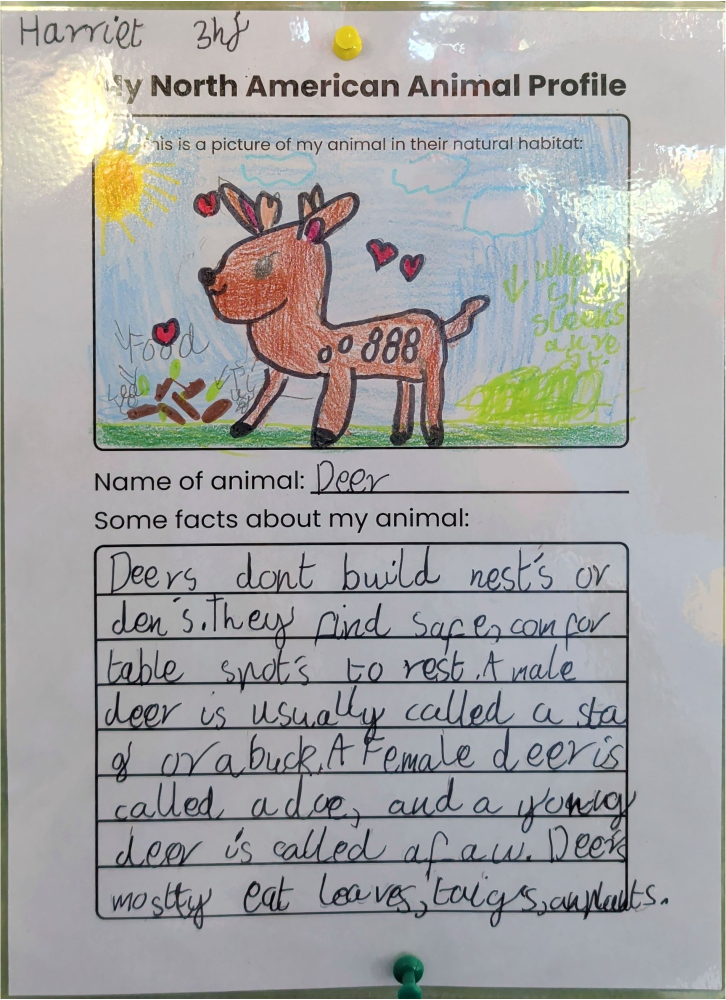 Harriet 3hf
My North American Animal Profile
This is a picture of my animal in their natural habitat:
Food
Name of animal: Deer
Some facts about my animal:
Deers dont build nest's or
den's. They find safe, comfor
table spot's to rest. A male
deer is usually called a sta
g or a buck. A Female deer is
called a doe, and a young
deer is called a faw. Deers
mostly eat leaves, taigs, an plants.